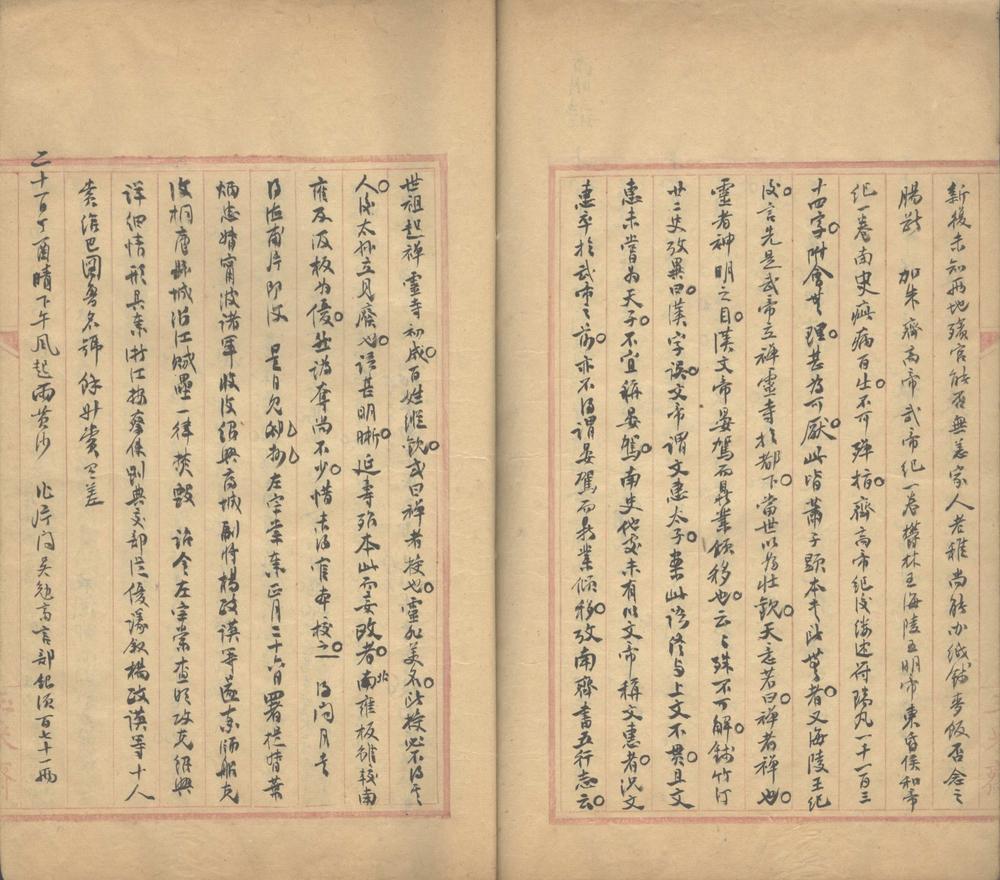 新復未知兩地殯宮能否無恙家人老稚尚能办紙錢麥飯否念之
腸斷　加朱齊高帝武帝紀一卷鬱林王海陵王明帝東昏侯和帝
紀一卷南史疵病百出不可殫指齊高帝紀後縷述符瑞凡一千一百三
十四字附會無理甚為可厭此皆蕭子顯本書所無者又海陵王紀
後言先是武帝立禪靈寺於都下當世以為壯觀天意若曰禪者禪也
靈者神明之目漢文帝晏駕而鼎業傾移也云云殊不可解錢竹汀
廿二史攷異曰漢字誤文帝謂文惠太子案此語終与上文不貫且文
惠未嘗為天子不宜稱晏駕南史他處未有以文帝稱文惠者況文
惠卒於武帝之前亦不得謂晏駕而鼎業傾移攷南齊書五行志云
世祖起禪靈寺初成百姓縱觀或曰禪者授也靈非美名所授必不得其
人後太孫立見廢也語甚明晰延壽殆本此而妄改者南北雍板雖較南
雍及汲板為優然譌奪尚不少惜未得官本校之　得閏月十
日片　是日見邸抄左宗棠奏正月二十六日署提督葉
炳忠婿甯波諸軍收復紹興府城副將楊政謨等遂率師船克
復桐廬縣城沿江賊壘一律焚毀　詔令左宗棠查明攻克紹興
詳細情形具奏浙江按察使劉典交部從優議敘楊政謨等十人
賞給巴圖魯名號餘升賞有差
二十一日丁酉晴下午風起雨黃沙　作片問吳勉高言部餉須百七十一兩